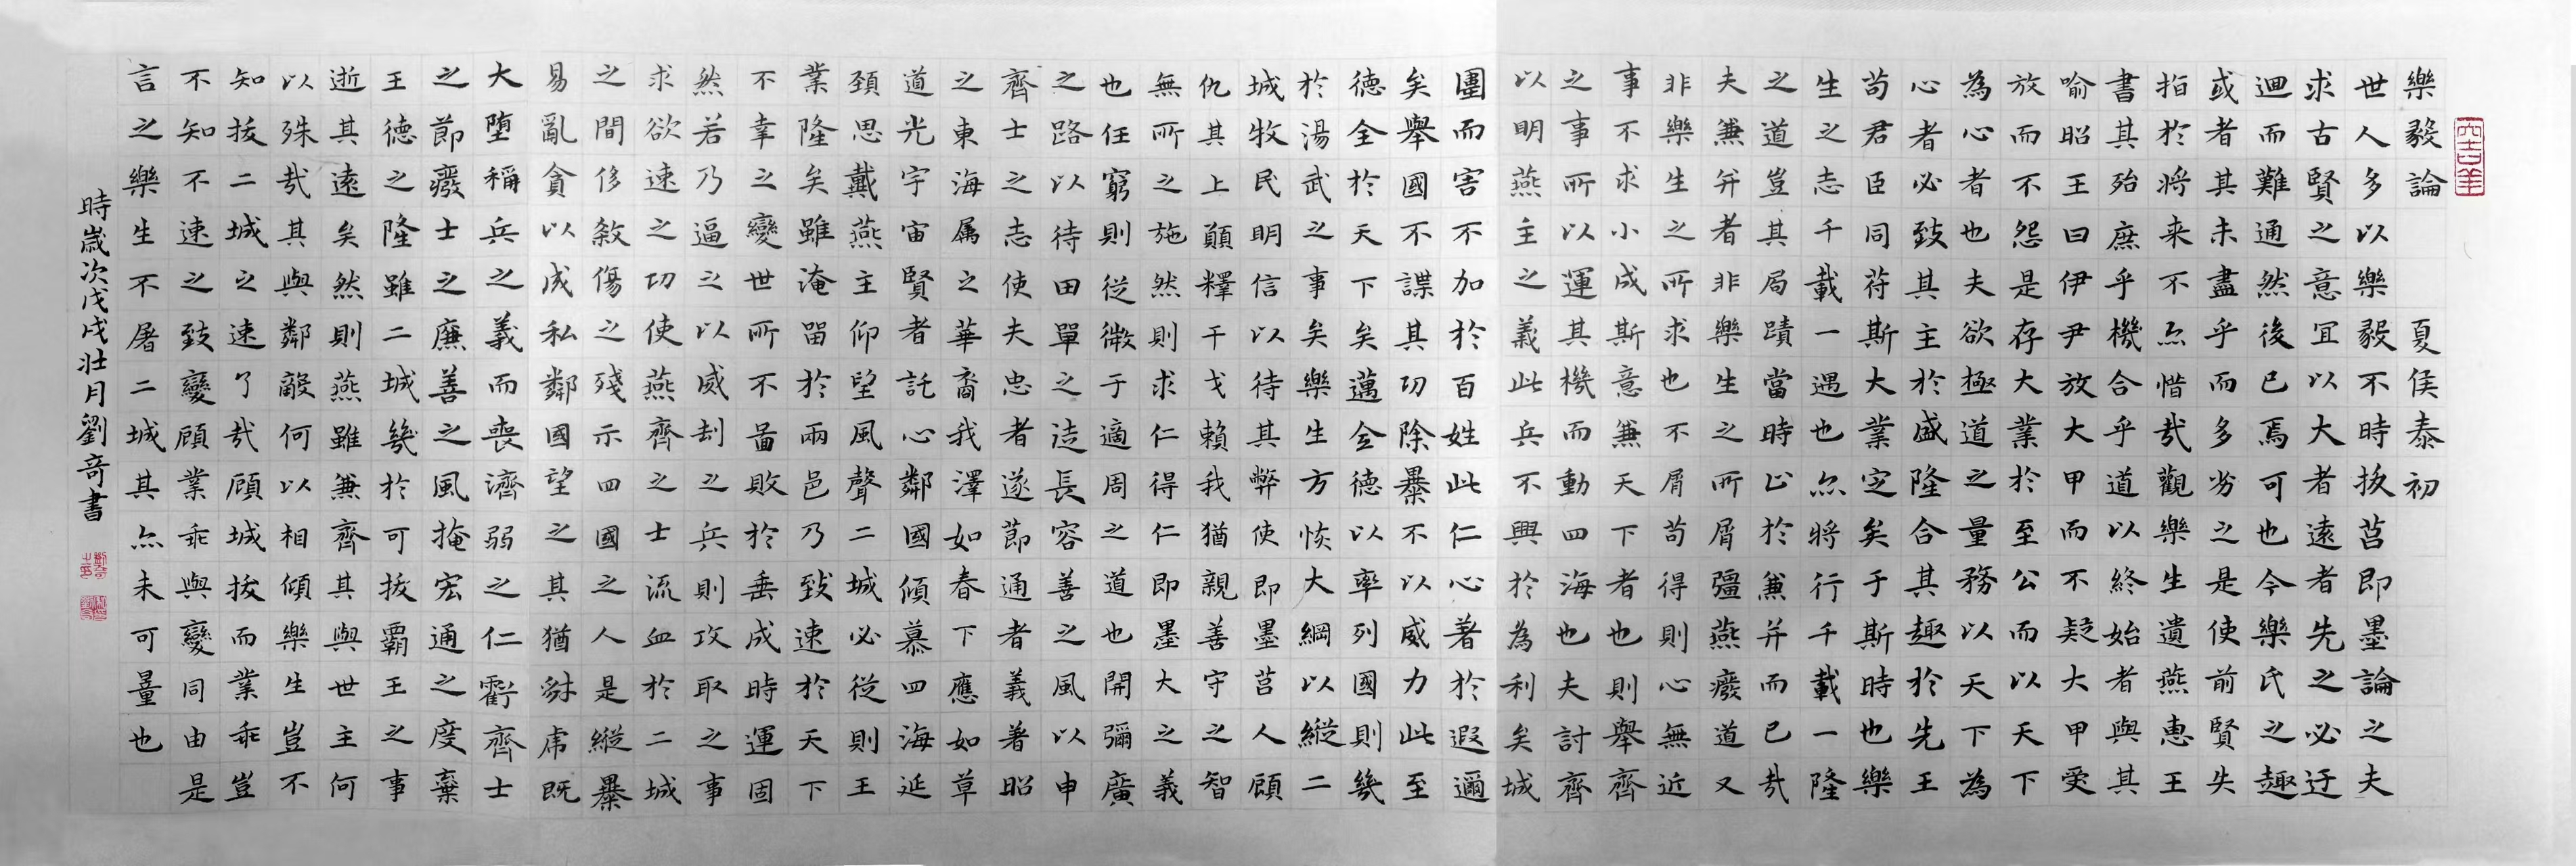 樂毅論 夏侯泰初
世人多以樂毅不時拔莒即墨論之夫
求古賢之意宜以大者遠者先之必迂
迴而難通然後已焉可也今樂氏之趣
或者其未盡乎而多劣之是使前賢失
指於将来不亦惜哉觀樂生遺燕惠王
書其殆庶乎機合乎道以終始者與其
喻昭王曰伊尹放大甲而不疑大甲受
放而不怨是存大業於至公而以天下
為心者也夫欲極道之量務以天下為
心者必致其主於盛隆合其趣於先王
苟君臣同苻斯大業定矣于斯時也樂
生之志千載一遇也亦將行千載一隆
之道豈其局蹟當時止於兼并而已哉
夫兼并者非樂生之所屑彊燕廢道又
非樂生之所求也不屑苟得則心無近
事不求小成斯意兼天下者也則舉齊
之事所以運其機而動四海也夫討齊
以明燕主之義此兵不興於為利矣城
圍而害不加於百姓此仁心著於遐邇
矣舉國不謀其功除暴不以威力此至
德全於天下矣邁全德以率列國則幾
於湯武之事矣樂生方恢大綱以縱二
城牧民明信以待其弊使即墨莒人顧
仇其上願釋干戈賴我猶親善守之智
無所之施然則求仁得仁即墨大之義
也任窮則從微于適周之道也開彌廣
之路以待田單之長容善之風以申
齊士之志使夫忠者遂節通者義著昭
之東海屬之華裔我澤如春下應如草
道光宇宙賢者託心鄰國傾慕四海延
頸思戴燕主仰望風聲二城必從則王
業隆矣雖淹留於兩邑乃致速於天下
不幸之變世所不啚敗於垂成時運固
然若乃逼之以威刦之兵則攻取之事
求欲速之功使燕齊之士流血於二城
之間侈殺傷之殘示四國之人是縱暴
易亂貪以成私鄰國望之其猶豺虎既
大堕稱兵之義而喪濟弱之仁虧齊士
之節廢士之廉善之風掩宏通之度棄
王德之隆雖二城幾於可拔霸王之事
逝其遠矣然則燕雖兼齊其與世主何
以殊哉其與鄰敵何以相傾樂生豈不
知拔二城之速了哉顧城拔而業乖豈
不知不速之致變顧業乖與變同由是
言之樂生不屠二城其亦未可量也
時歲次戊戌壯月劉奇書